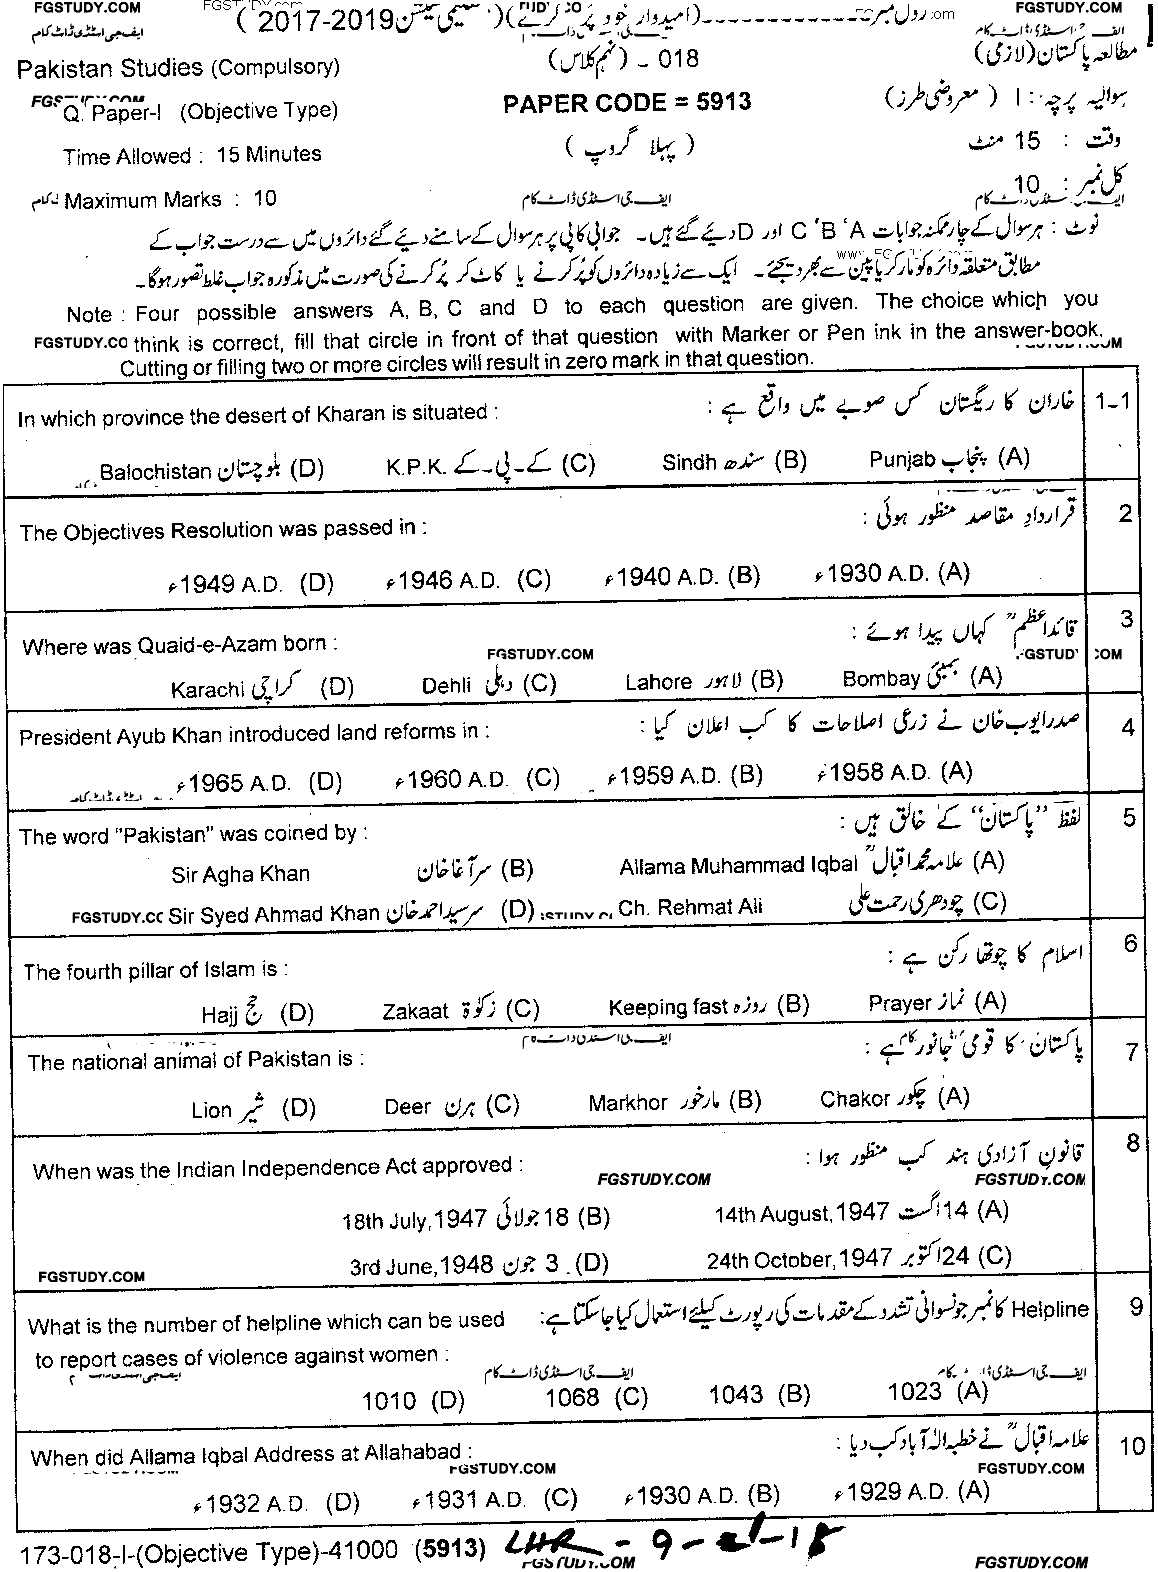 FGSTUDY.COM
رول نمبر ---------------(امیدوار خود پُر کرے)( تعلیمی سیشن 2017-2019 )
FGSTUDY.COM
ایف جی اسٹڈی ڈاٹ کام
مطالعہ پاکستان (لازمی)
018 - (نہم کلاس)
Pakistan Studies (Compulsory)
سوالیہ پرچہ : I ( معروضی طرز)
PAPER CODE = 5913
Q. Paper-I (Objective Type)
وقت : 15 منٹ
( پہلا گروپ )
Time Allowed : 15 Minutes
کل نمبر : 10
ایف جی اسٹڈی ڈاٹ کام
Maximum Marks : 10
نوٹ : ہر سوال کے چار ممکنہ جوابات A ‘B ‘C اور D دیئے گئے ہیں۔ جوابی کاپی پر ہر سوال کے سامنے دیئے گئے دائروں میں سے درست جواب کے
مطابق متعلقہ دائرہ کو مارکر یا پین سے بھر دیجئے۔ ایک سے زیادہ دائروں کو پُر کرنے یا کاٹ کر پُر کرنے کی صورت میں مذکورہ جواب غلط تصور ہوگا۔
Note : Four possible answers A, B, C and D to each question are given. The choice which you
FGSTUDY.CO think is correct, fill that circle in front of that question with Marker or Pen ink in the answer-book.
Cutting or filling two or more circles will result in zero mark in that question.
1-1 خاران کا ریگستان کس صوبے میں واقع ہے :
In which province the desert of Kharan is situated :
(A) پنجاب Punjab (B) سندھ Sindh (C) کے۔پی۔کے K.P.K. (D) بلوچستان Balochistan
2 قراردادِ مقاصد منظور ہوئی :
The Objectives Resolution was passed in :
(A) 1930 A.D.ء (B) 1940 A.D.ء (C) 1946 A.D.ء (D) 1949 A.D.ء
3 قائداعظمؒ کہاں پیدا ہوئے :
Where was Quaid-e-Azam born :
FGSTUDY.COM
(A) بمبئی Bombay (B) لاہور Lahore (C) دہلی Dehli (D) کراچی Karachi
4 صدر ایوب خان نے زرعی اصلاحات کا کب اعلان کیا :
President Ayub Khan introduced land reforms in :
(A) 1958 A.D.ء (B) 1959 A.D.ء (C) 1960 A.D.ء (D) 1965 A.D.ء
5 لفظ "پاکستان" کے خالق ہیں :
The word "Pakistan" was coined by :
(A) علامہ محمد اقبالؒ Allama Muhammad Iqbal (B) سر آغا خان Sir Agha Khan
(C) چودھری رحمت علی Ch. Rehmat Ali (D) سر سید احمد خان Sir Syed Ahmad Khan
6 اسلام کا چوتھا رکن ہے :
The fourth pillar of Islam is :
(A) نماز Prayer (B) روزہ Keeping fast (C) زکوٰۃ Zakaat (D) حج Hajj
ایف جی اسٹڈی ڈاٹ کام
7 پاکستان کا قومی جانور ہے :
The national animal of Pakistan is :
(A) چکور Chakor (B) مارخور Markhor (C) ہرن Deer (D) شیر Lion
8 قانونِ آزادی ہند کب منظور ہوا :
When was the Indian Independence Act approved :
FGSTUDY.COM
FGSTUDY.COM
(A) 14 اگست 14th August,1947 (B) 18 جولائی 18th July,1947
(C) 24 اکتوبر 24th October,1947 (D) 3 جون 3rd June,1948
FGSTUDY.COM
9 Helpline کا نمبر جو نسوانی تشدد کے مقدمات کی رپورٹ کیلئے استعمال کیا جا سکتا ہے:
What is the number of helpline which can be used
to report cases of violence against women :
ایف جی اسٹڈی ڈاٹ کام
(A) 1023 (B) 1043 (C) 1068 (D) 1010
10 علامہ اقبالؒ نے خطبہ الٰہ آباد کب دیا :
When did Allama Iqbal Address at Allahabad :
FGSTUDY.COM
FGSTUDY.COM
(A) 1929 A.D.ء (B) 1930 A.D.ء (C) 1931 A.D.ء (D) 1932 A.D.ء
173-018-I-(Objective Type)-41000 (5913) LHR - 9
FGSTUDY.COM
FGSTUDY.COM